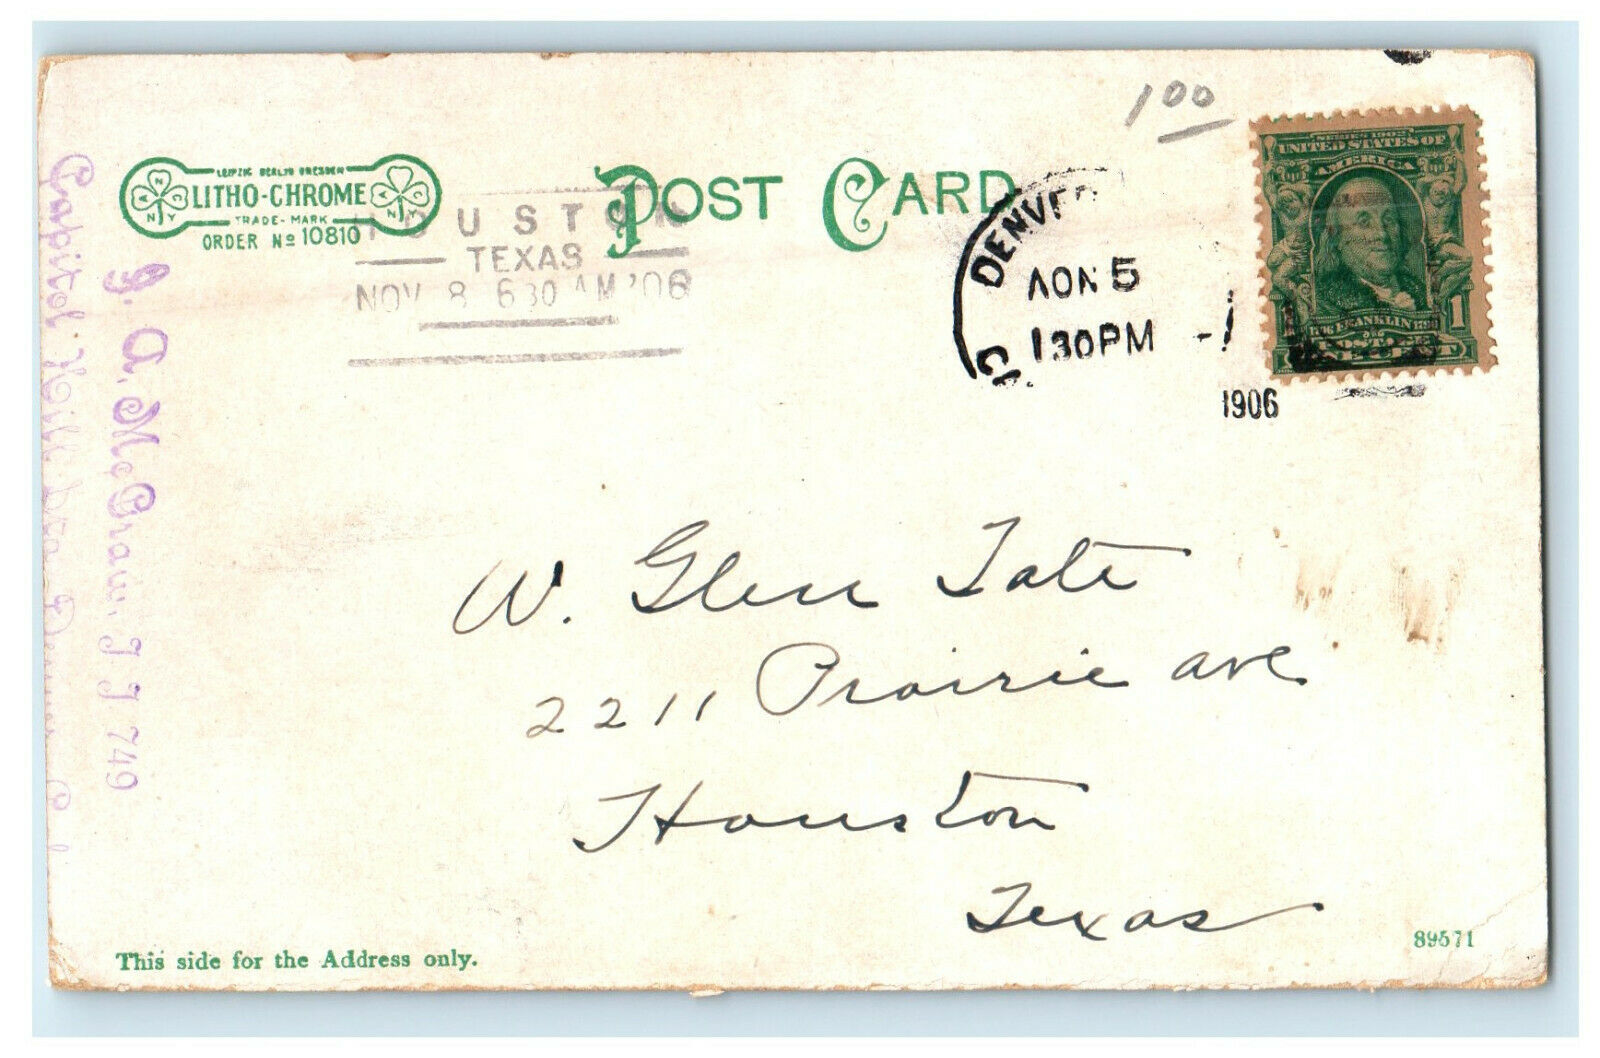 1 00
LEIPZIG BERLIN DRESDEN
LITHO-CHROME
TRADE-MARK
ORDER No 10810
POST CARD
HOUSTON
TEXAS
NOV 8 630 AM '06
DENVER
NOV 5
130 PM
1906
SERIES 1902
UNITED STATES OF
AMERICA
FRANKLIN
1
J. A. McGraw, J J 749
Capitol Hill
W. Glenn Tate
2211 Prairie ave
Houston
Texas
89571
This side for the Address only.